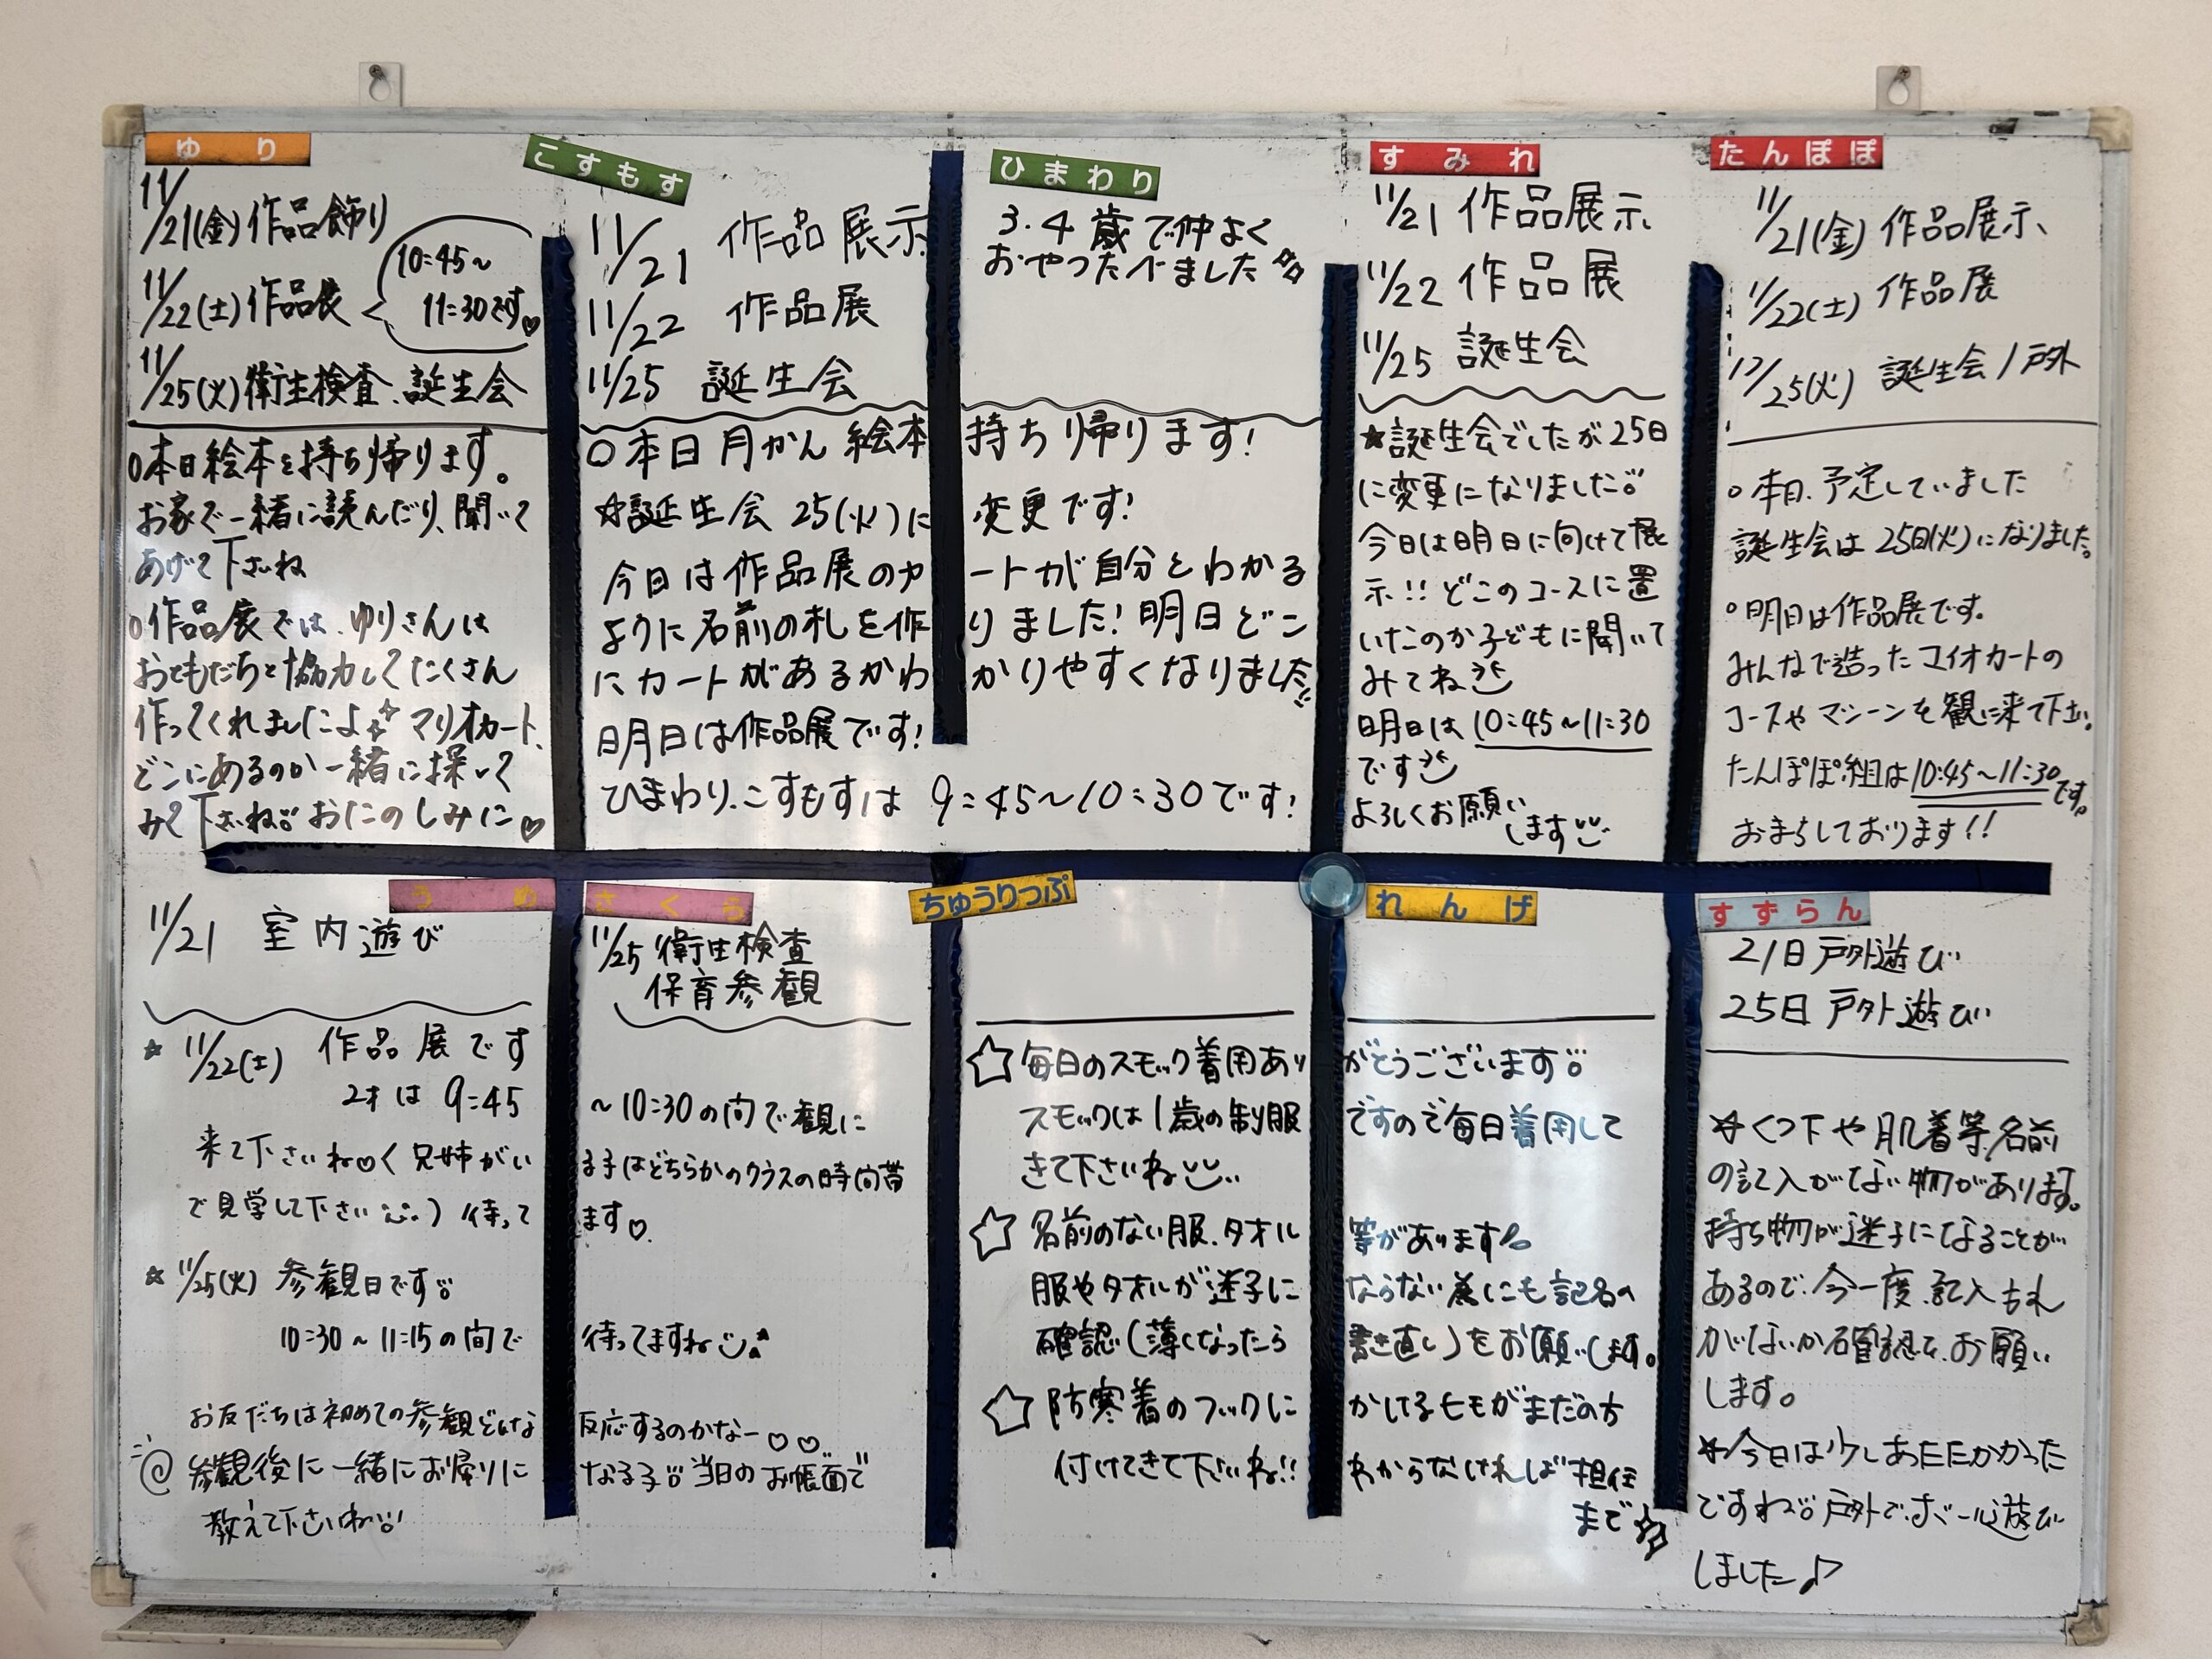 ゆり
11/21(金)作品飾り
11/22(土)作品展
10:45～
11:30です♡
11/25(火)衛生検査、誕生会
○本日絵本を持ち帰ります。
お家で一緒に読んだり、聞いて
あげて下さいね
○作品展では、ゆりさんは
おともだちと協力してたくさん
作ってくれましたよ マリオカート、
どこにあるのか一緒に探して
みて下さいね。おたのしみに♡
こすもす
ひまわり
11/21 作品展示
11/22 作品展
11/25 誕生会
3.4歳で仲よく
おやつたべました☆
○本日月かん絵本持ち帰ります!
☆誕生会 25(火)に変更です!
今日は作品展のカートが自分とわかる
ように名前の札を作りました!明日どこ
にカートがあるかわかりやすくなりました!!
明日は作品展です!
ひまわり.こすもすは 9:45～10:30です!
すみれ
11/21 作品展示
11/22 作品展
11/25 誕生会
★誕生会でしたが25日
に変更になりました。
今日は明日に向けて展
示!!どこのコースに置
いたのか子どもに聞いて
みてね
明日は10:45～11:30
です
よろしくお願い
します
たんぽぽ
11/21(金) 作品展示
11/22(土) 作品展
11/25(火) 誕生会/戸外
○本日、予定していました
誕生会は25日(火)になりました。
○明日は作品展です。
みんなで造ったマイオカートの
コースやマシーンを観に来て下さい。
たんぽぽ組は10:45～11:30です。
おまちしております!!
うめ
さくら
11/21 室内遊び
11/25 衛生検査
保育参観
★ 11/22(土) 作品展です
2才は 9:45～10:30の間で観に
来て下さいね♡(兄姉がいる子はどちらかのクラスの時間帯
で見学して下さい)待ってます♡
★ 11/25(火) 参観日です
10:30～11:15の間で待ってますね
お友だちは初めての参観どんな反応するのかなー♡♡
参観後に一緒にお帰りになる子 当日のお帳面で
教えて下さいね
ちゅうりっぷ
れんげ
☆毎日のスモック着用ありがとうございます
スモックは1歳の制服ですので毎日着用して
きて下さいね
☆名前のない服.タオル等があります
服やタオルが迷子にならない為にも記名の
確認(薄くなったら書き直し)をお願いします。
☆防寒着のフックにかけるヒモがまだの方
付けてきて下さいね!!わからなければ担任
まで☆
すずらん
21日 戸外遊び
25日 戸外遊び
☆くつ下や肌着等、名前
の記入がない物があります。
持ち物が迷子になることが
あるので、今一度、記入もれ
がないか確認を、お願い
します。
☆今日は少しあたたかかった
ですね 戸外で、ボール遊び
しました♪